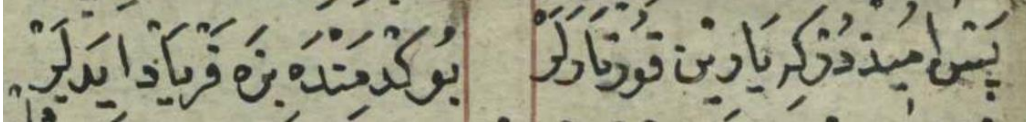 پَسْ اُمِیدْدُرْ كِه یَارِینْ قُورْتَارَلَرْ بُو كَدَمَنْدَه بِزَه فَرْیَادْ ایدَلَرْ